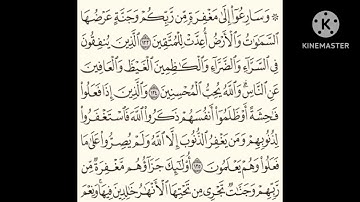 ۞ وَسَارِعُوٓا۟ إِلَىٰ مَغْفِرَةٍ مِّن رَّبِّكُمْ وَجَنَّةٍ عَرْضُهَا
السَّمَٰوَٰتُ وَالْأَرْضُ أُعِدَّتْ لِلْمُتَّقِينَ ١٣٣ الَّذِينَ يُنفِقُونَ
فِي السَّرَّآءِ وَالضَّرَّآءِ وَالْكَٰظِمِينَ الْغَيْظَ وَالْعَافِينَ
عَنِ النَّاسِ ۗ وَاللَّهُ يُحِبُّ الْمُحْسِنِينَ ١٣٤ وَالَّذِينَ إِذَا فَعَلُوا۟
فَٰحِشَةً أَوْ ظَلَمُوٓا۟ أَنفُسَهُمْ ذَكَرُوا۟ اللَّهَ فَاسْتَغْفَرُوا۟
لِذُنُوبِهِمْ وَمَن يَغْفِرُ الذُّنُوبَ إِلَّا اللَّهُ وَلَمْ يُصِرُّوا۟ عَلَىٰ مَا
فَعَلُوا۟ وَهُمْ يَعْلَمُونَ ١٣٥ أُو۟لَٰٓئِكَ جَزَآؤُهُم مَّغْفِرَةٌ مِّن
رَّبِّهِمْ وَجَنَّٰتٌ تَجْرِي مِن تَحْتِهَا الْأَنْهَٰرُ خَٰلِدِينَ فِيهَا ۚ وَنِعْمَ
MADE WITH
KINEMASTER